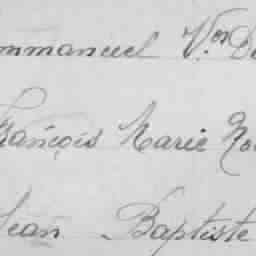 mmanuel V.or D
François Marie
Jean Baptiste